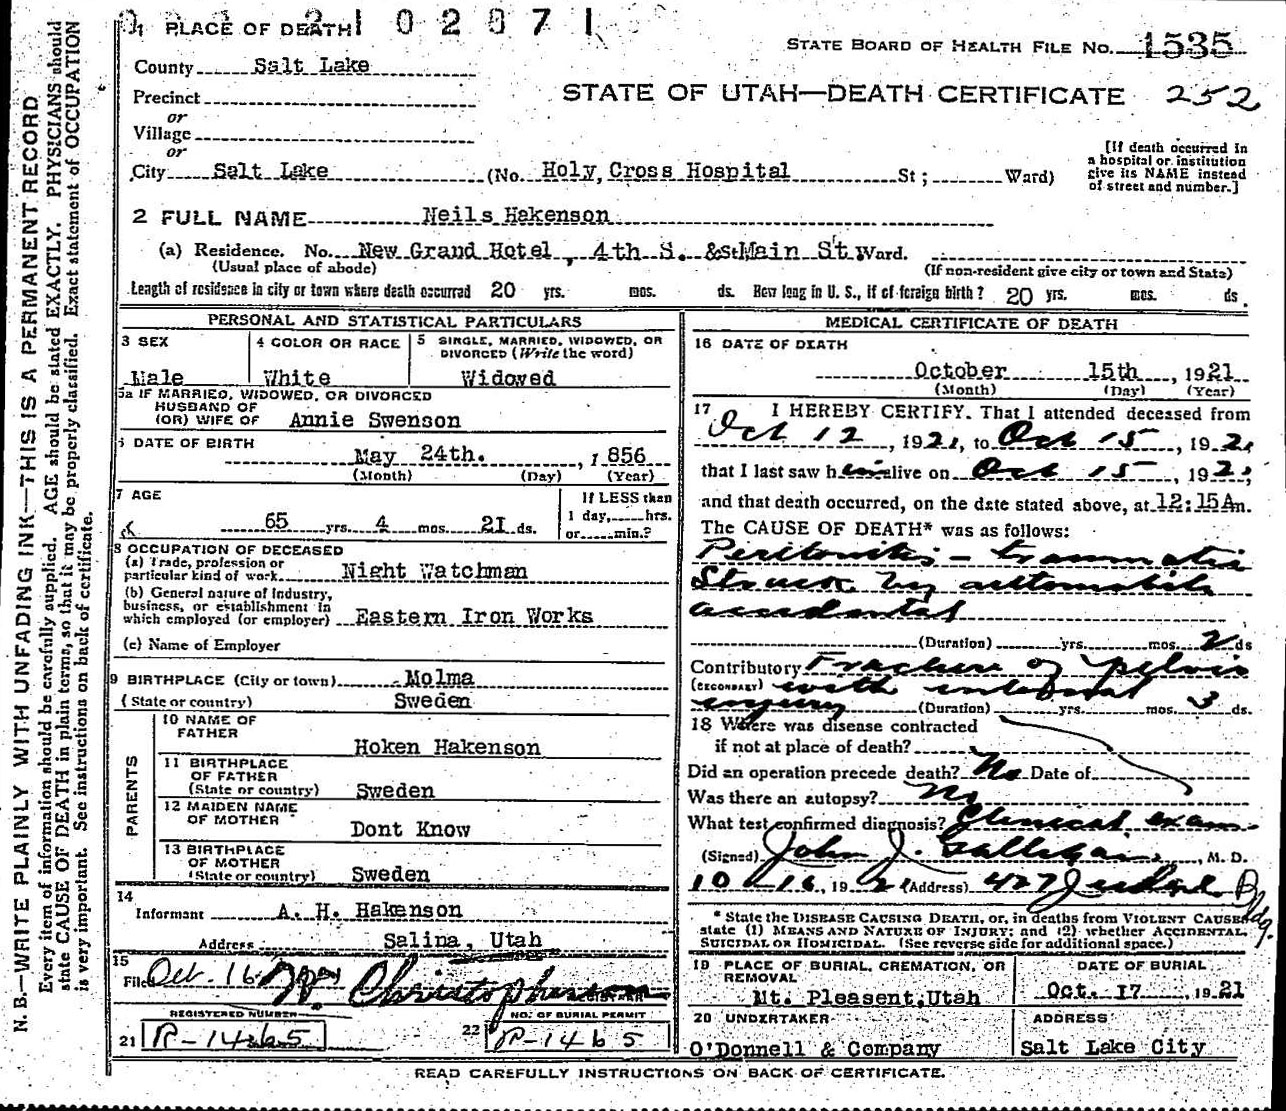 2 1 0 2 0 7 1
1 PLACE OF DEATH
STATE BOARD OF HEALTH FILE NO. 1535
County Salt Lake
STATE OF UTAH—DEATH CERTIFICATE 252
Precinct
or
Village
or
City Salt Lake (No. Holy Cross Hospital St; Ward)
[If death occurred in a hospital or institution give its NAME instead of street and number.]
2 FULL NAME Neils Hakenson
(a) Residence. No. New Grand Hotel, 4th S. &St Main St Ward.
(Usual place of abode) (If non-resident give city or town and State)
Length of residence in city or town where death occurred 20 yrs. mos. ds. How long in U. S., if of foreign birth? 20 yrs. mos. ds.
PERSONAL AND STATISTICAL PARTICULARS
3 SEX
Male
4 COLOR OR RACE
White
5 SINGLE, MARRIED, WIDOWED, OR DIVORCED (Write the word)
Widowed
5a IF MARRIED, WIDOWED, OR DIVORCED
HUSBAND OF
(OR) WIFE OF Annie Swenson
6 DATE OF BIRTH
May 24th. , 1856
(Month) (Day) (Year)
7 AGE
65 yrs. 4 mos. 21 ds.
If LESS than
1 day, hrs.
or min.?
8 OCCUPATION OF DECEASED
(a) Trade, profession or
particular kind of work Night Watchman
(b) General nature of Industry,
business, or establishment in
which employed (or employer) Eastern Iron Works
(c) Name of Employer
9 BIRTHPLACE (City or town) Molma
(State or country) Sweden
PARENTS
10 NAME OF
FATHER
Hoken Hakenson
11 BIRTHPLACE
OF FATHER
(State or country) Sweden
12 MAIDEN NAME
OF MOTHER
Dont Know
13 BIRTHPLACE
OF MOTHER
(State or country) Sweden
14
Informant A. H. Hakenson
Address Salina, Utah
15
Filed Oct. 16 Christopherson
REGISTERED NUMBER
21 R-1465
NO. OF BURIAL PERMIT
22 R-1465
MEDICAL CERTIFICATE OF DEATH
16 DATE OF DEATH
October 15th , 1921
(Month) (Day) (Year)
17 I HEREBY CERTIFY. That I attended deceased from
Oct 12 , 1921, to Oct 15 , 1921
that I last saw him alive on Oct 15 , 1921
and that death occurred, on the date stated above, at 12:15 Am.
The CAUSE OF DEATH* was as follows:
Peritonitis - traumatic
Struck by automobile
accidental
(Duration) yrs. mos. 2 ds
Contributory Fracture of pelvis
(SECONDARY) with internal
injury (Duration) yrs. mos. 3 ds.
18 Where was disease contracted
if not at place of death?
Did an operation precede death? No Date of
Was there an autopsy? No
What test confirmed diagnosis? Clinical exam
(Signed) John J. Galligan, M. D.
10-16, 1921 (Address) 427 Judge Bldg.
* State the DISEASE CAUSING DEATH, or, in deaths from VIOLENT CAUSES
state (1) MEANS AND NATURE OF INJURY; and (2) whether ACCIDENTAL,
SUICIDAL OR HOMICIDAL. (See reverse side for additional space.)
19 PLACE OF BURIAL, CREMATION, OR
REMOVAL
Mt. Pleasent, Utah
DATE OF BURIAL
Oct. 17 , 1921
20 UNDERTAKER
O'Donnell & Company
ADDRESS
Salt Lake City
READ CAREFULLY INSTRUCTIONS ON BACK OF CERTIFICATE.
N. B.—WRITE PLAINLY WITH UNFADING INK—THIS IS A PERMANENT RECORD
Every item of information should be carefully supplied. AGE should be stated EXACTLY. PHYSICIANS should
state CAUSE OF DEATH in plain terms, so that it may be properly classified. Exact statement of OCCUPATION
is very important. See instructions on back of certificate.